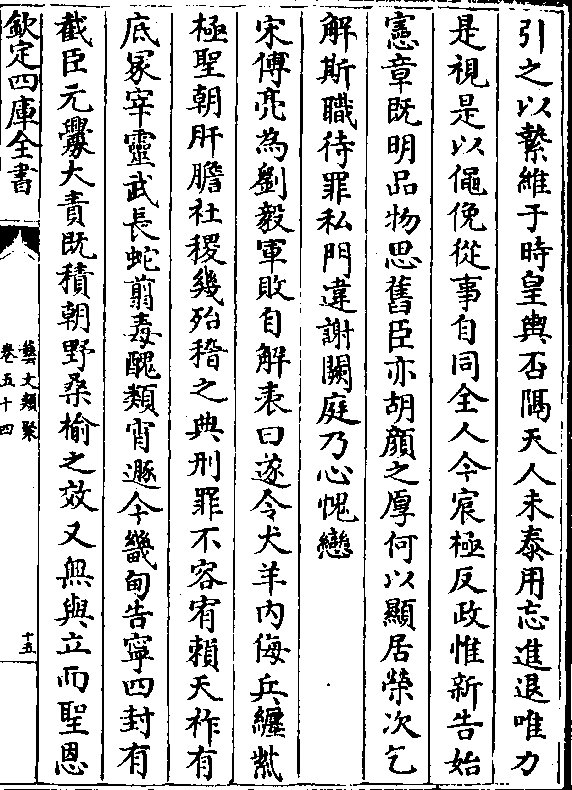 引之以縶維于時皇輿否隔天人未泰用忘進退唯力
是視是以僶俛從事自同全人今宸極反政惟新告始
憲章既明品物思舊臣亦胡顏之厚何以顯居榮次乞
解斯職待罪私門違謝闕庭乃心愧戀
宋傅亮為劉毅軍敗自解表曰遂令犬羊内侮兵纏紫
極聖朝肝膽社稷幾殆稽之典刑罪不容宥賴天祚有
底冢宰靈武長蛇翦毒醜類宵遯今畿甸告寧四封有
截臣元釁大責既積朝野桑榆之效又無與立而聖恩
欽定四庫全書
藝文類聚
卷五十四
十五